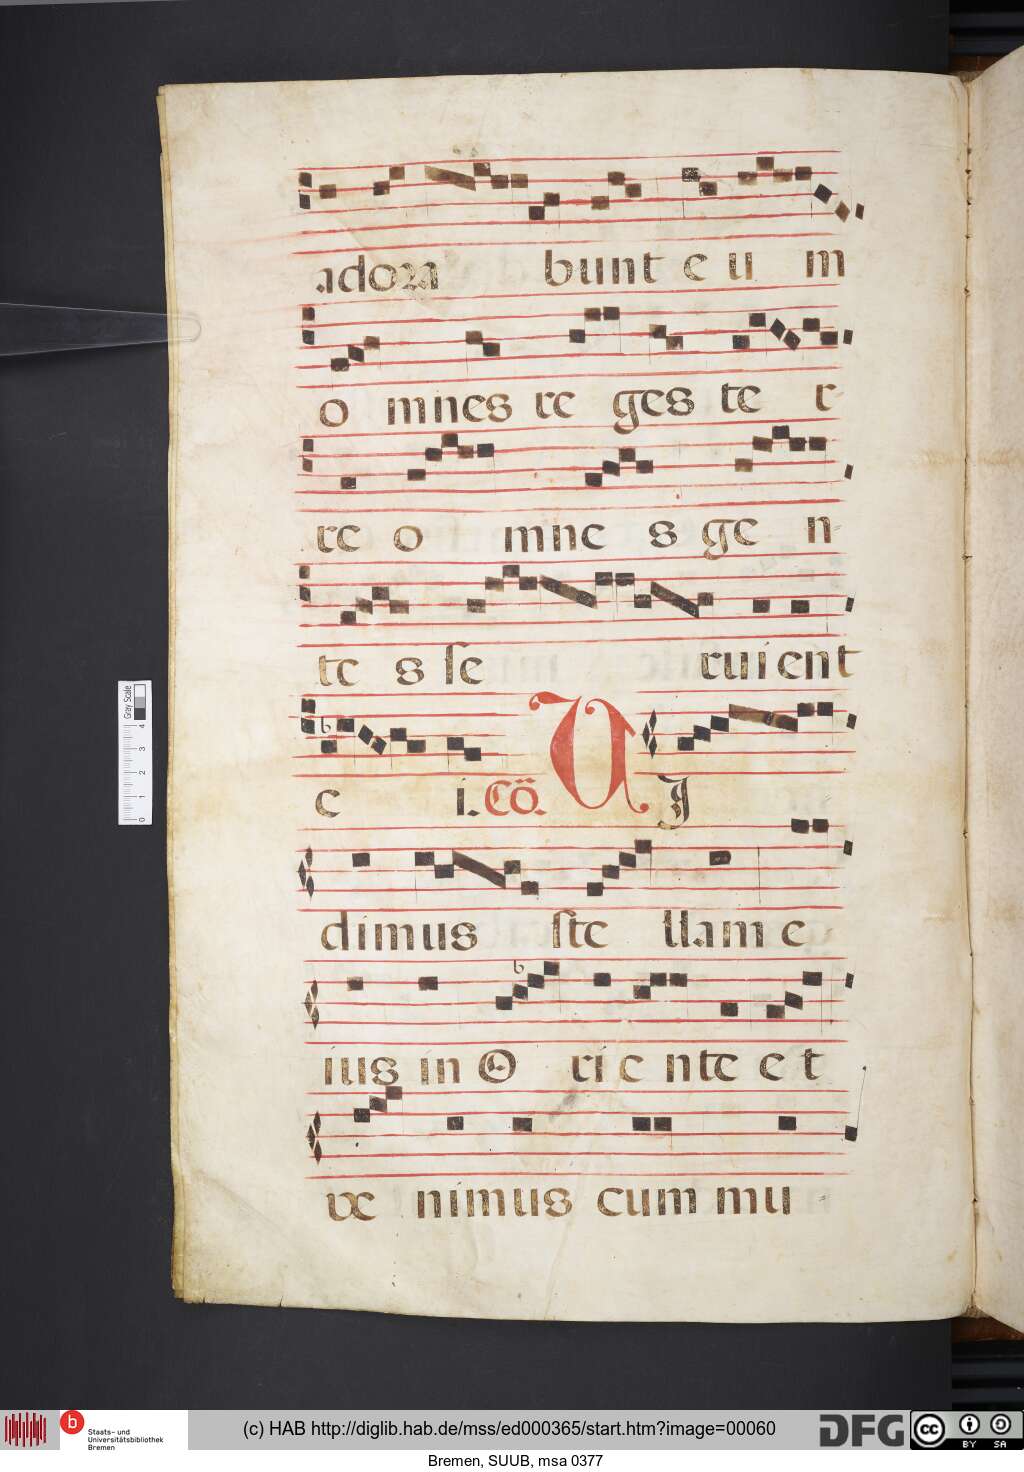 adora bunt e u m
o mnes re ges te r-
re o mne s ge n-
te s se ruient
e i. Cō. VJ
dimus ste llam e
ius in O rie nte et
ve nimus cum mu
Gray Scale
4 3 2 1 0
b
Staats- und
Universitätsbibliothek
Bremen
(c) HAB http://diglib.hab.de/mss/ed000365/start.htm?image=00060
DFG
cc BY SA
Bremen, SUUB, msa 0377